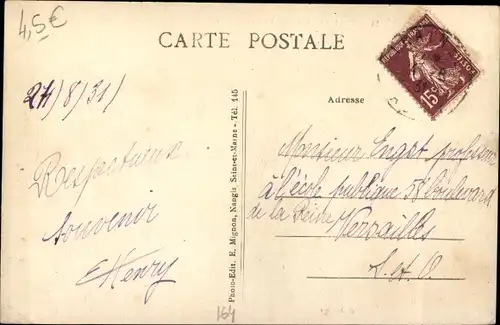 4,5€
CARTE POSTALE
REPUBLIQUE FRANÇAISE
POSTES
15c
24/8/31
Adresse
Respectueux
souvenir
E Henry
Photo-Edit. E. Mignon, Nangis, Seine-et-Marne - Tél. 145
Monsieur Engst professeur
à l'école publique 58 boulevard
de la Reine
Versailles
S. et O.
164